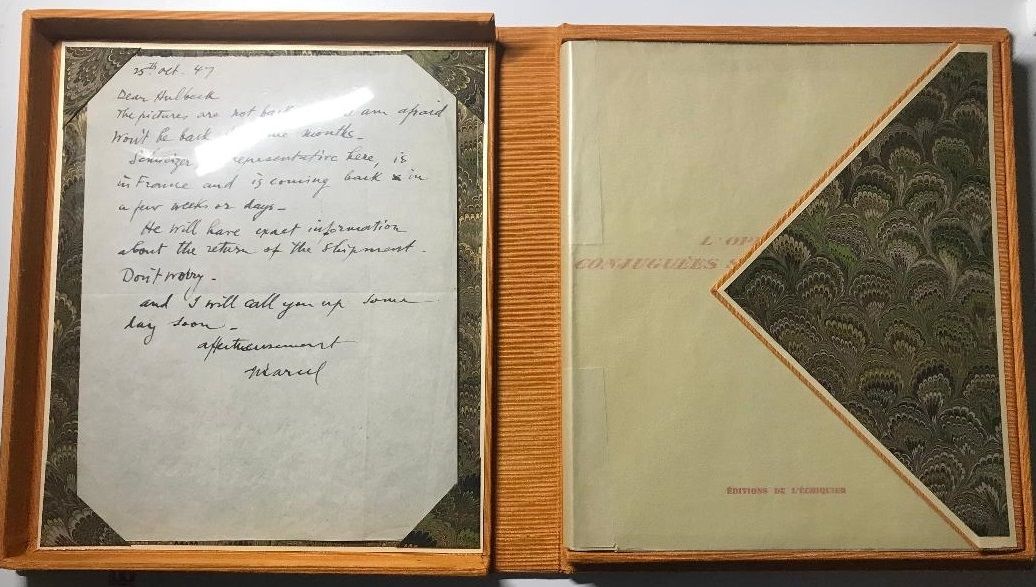 25th oct. 47
Dear Hulbeck
The pictures are not back am afraid
Won't be back months_
Schweizer representative here, is
in France and is coming back in
a few weeks or days_
He will have exact information
about the return of the shipment.
Don't worry_
and I will call you up some
day soon_
affectueusement
Marcel
L'OP
CONJUGUÉES S
ÉDITIONS DE L'ÉCHIQUIER